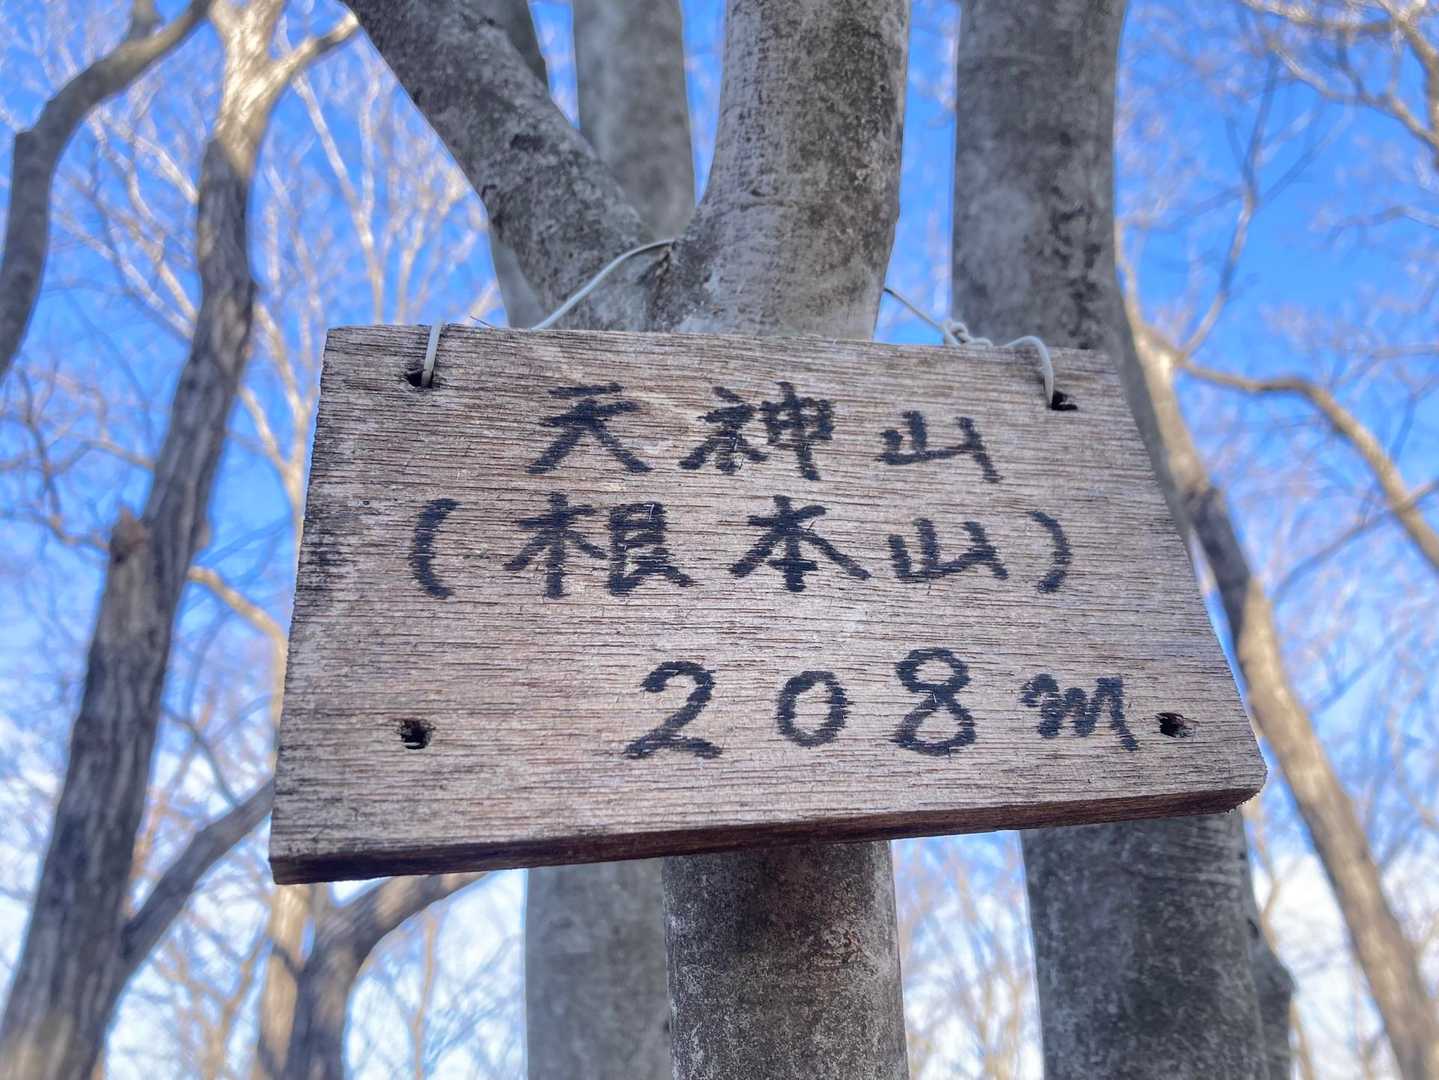 天神山
(根本山)
208m